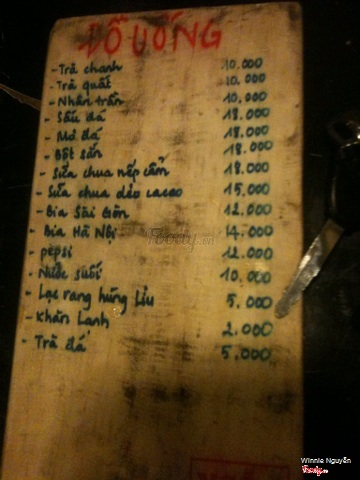 ĐỒ UỐNG
- Trà chanh 10.000
- Trà quất 10.000
- Nhân trần 10.000
- Sấu đá 18.000
- Mơ đá 18.000
- Bột sắn 18.000
- Sữa chua nếp cẩm 18.000
- Sữa chua dẻo cacao 15.000
- Bia Sài Gòn 12.000
- Bia Hà Nội 14.000
- pepsi 12.000
- Nước suối 10.000
- Lạc rang húng lìu 5.000
- Khăn lạnh 2.000
- Trà đá 5.000
Foody.vn
Winnie Nguyễn
Foody.vn